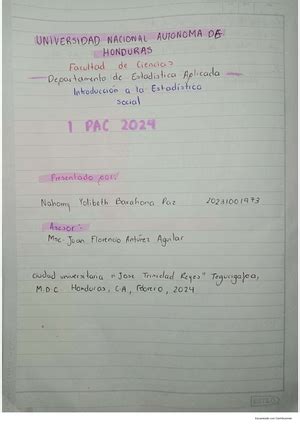 UNIVERSIDAD NACIONAL AUTONOMA DE
HONDURAS
Facultad de Ciencias
Departamento de Estadística Aplicada
Introducción a la Estadística
Social
1 PAC 2024
Presentado por:
Nahomy Yolibeth Barahona Paz 20231001993
Asesor:
Msc. Juan Florencio Antúnez Aguilar
Ciudad universitaria "José Trinidad Reyes" Tegucigalpa,
M.D.C Honduras, C.A, Febrero, 2024